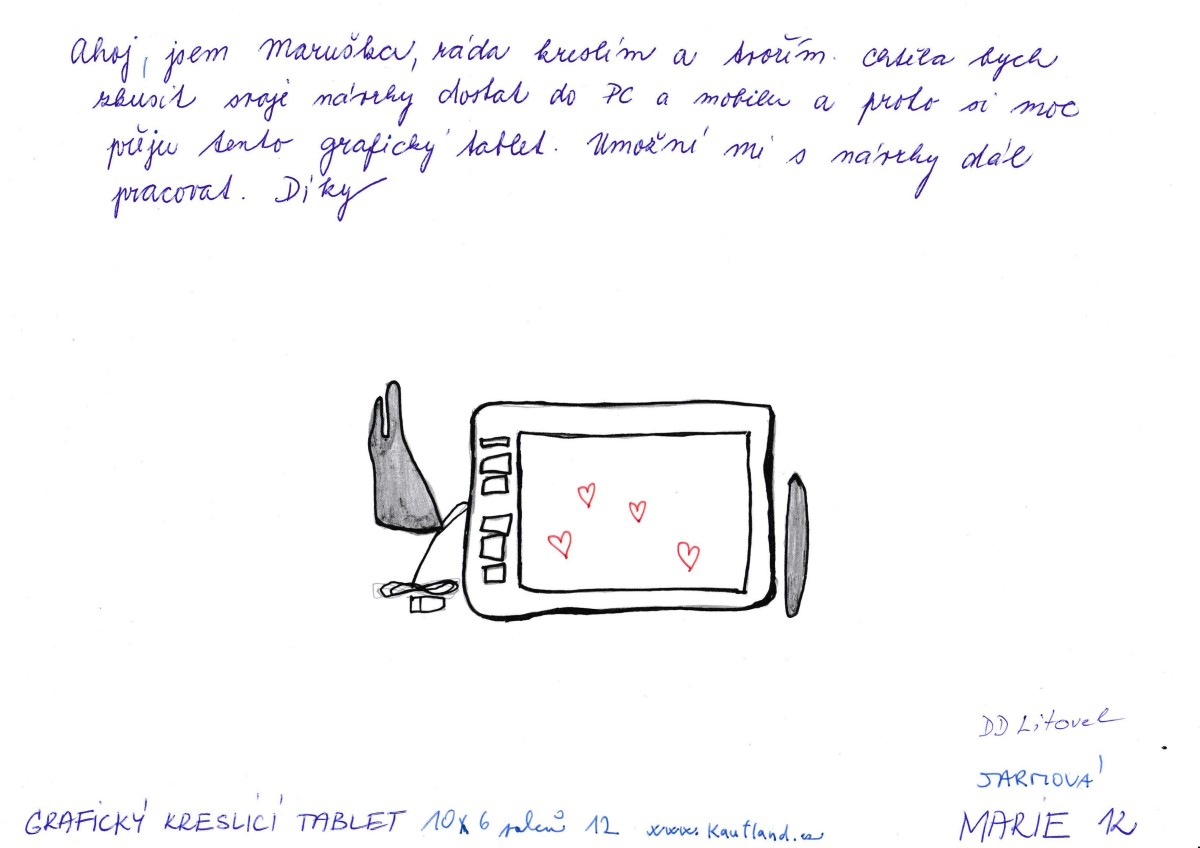 Ahoj, jsem Maruška, ráda kreslím a tvořím. chtěla bych
zkusit svoje návrhy dostat do PC a mobilu a proto si moc
přeju tento grafický tablet. Umožní mi s návrhy dál
pracovat. Díky
DD Litovel
JARMOVÁ
GRAFICKÝ KRESLÍCÍ TABLET 10x6 palců 12 www.Kaufland.cz
MARIE 12